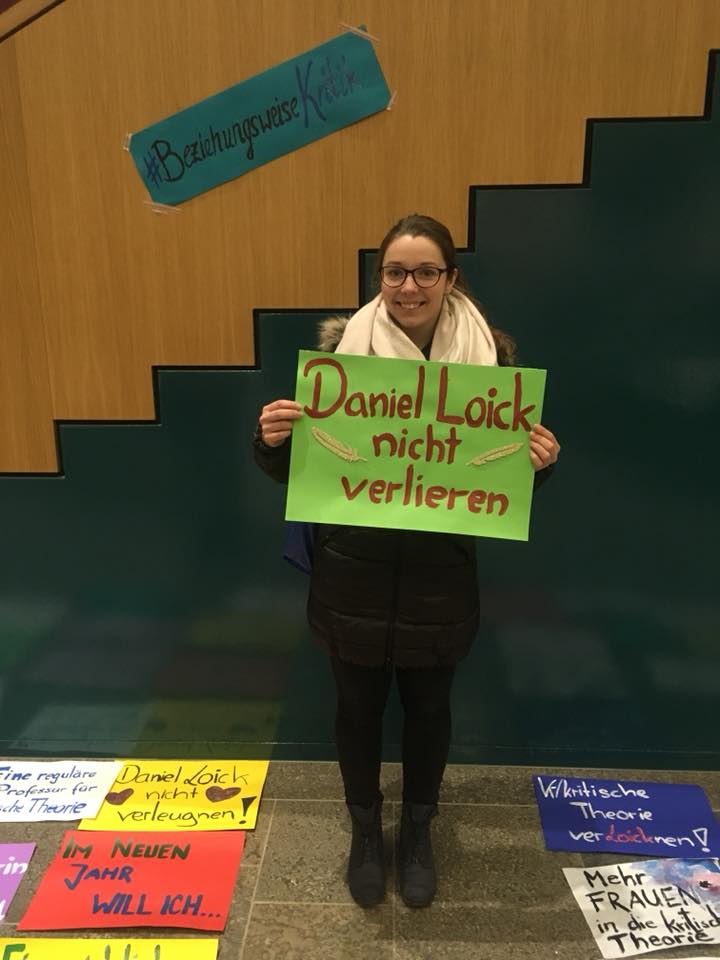 #BeziehungsweiseKritik
Daniel Loick
nicht
verlieren
Eine reguläre
Professur für
Theorie
Daniel Loick
nicht
verleugnen!
IM NEUEN
JAHR
WILL ICH...
Theorie
verLoicknen!
Mehr
FRAUEN
in die
Theorie